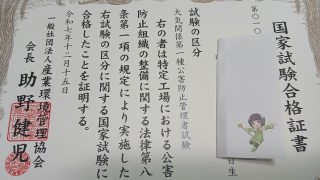 国家試験合格証書
第〇一〇
日生
試験の区分
大気関係第一種公害防止管理者試験
右の者は特定工場における公害
防止組織の整備に関する法律第八
条第一項の規定により実施した
右試験の区分に関する国家試験に
合格したことを証明する。
令和七年十二月十五日
一般社団法人産業環境管理協会
会長 助野健児